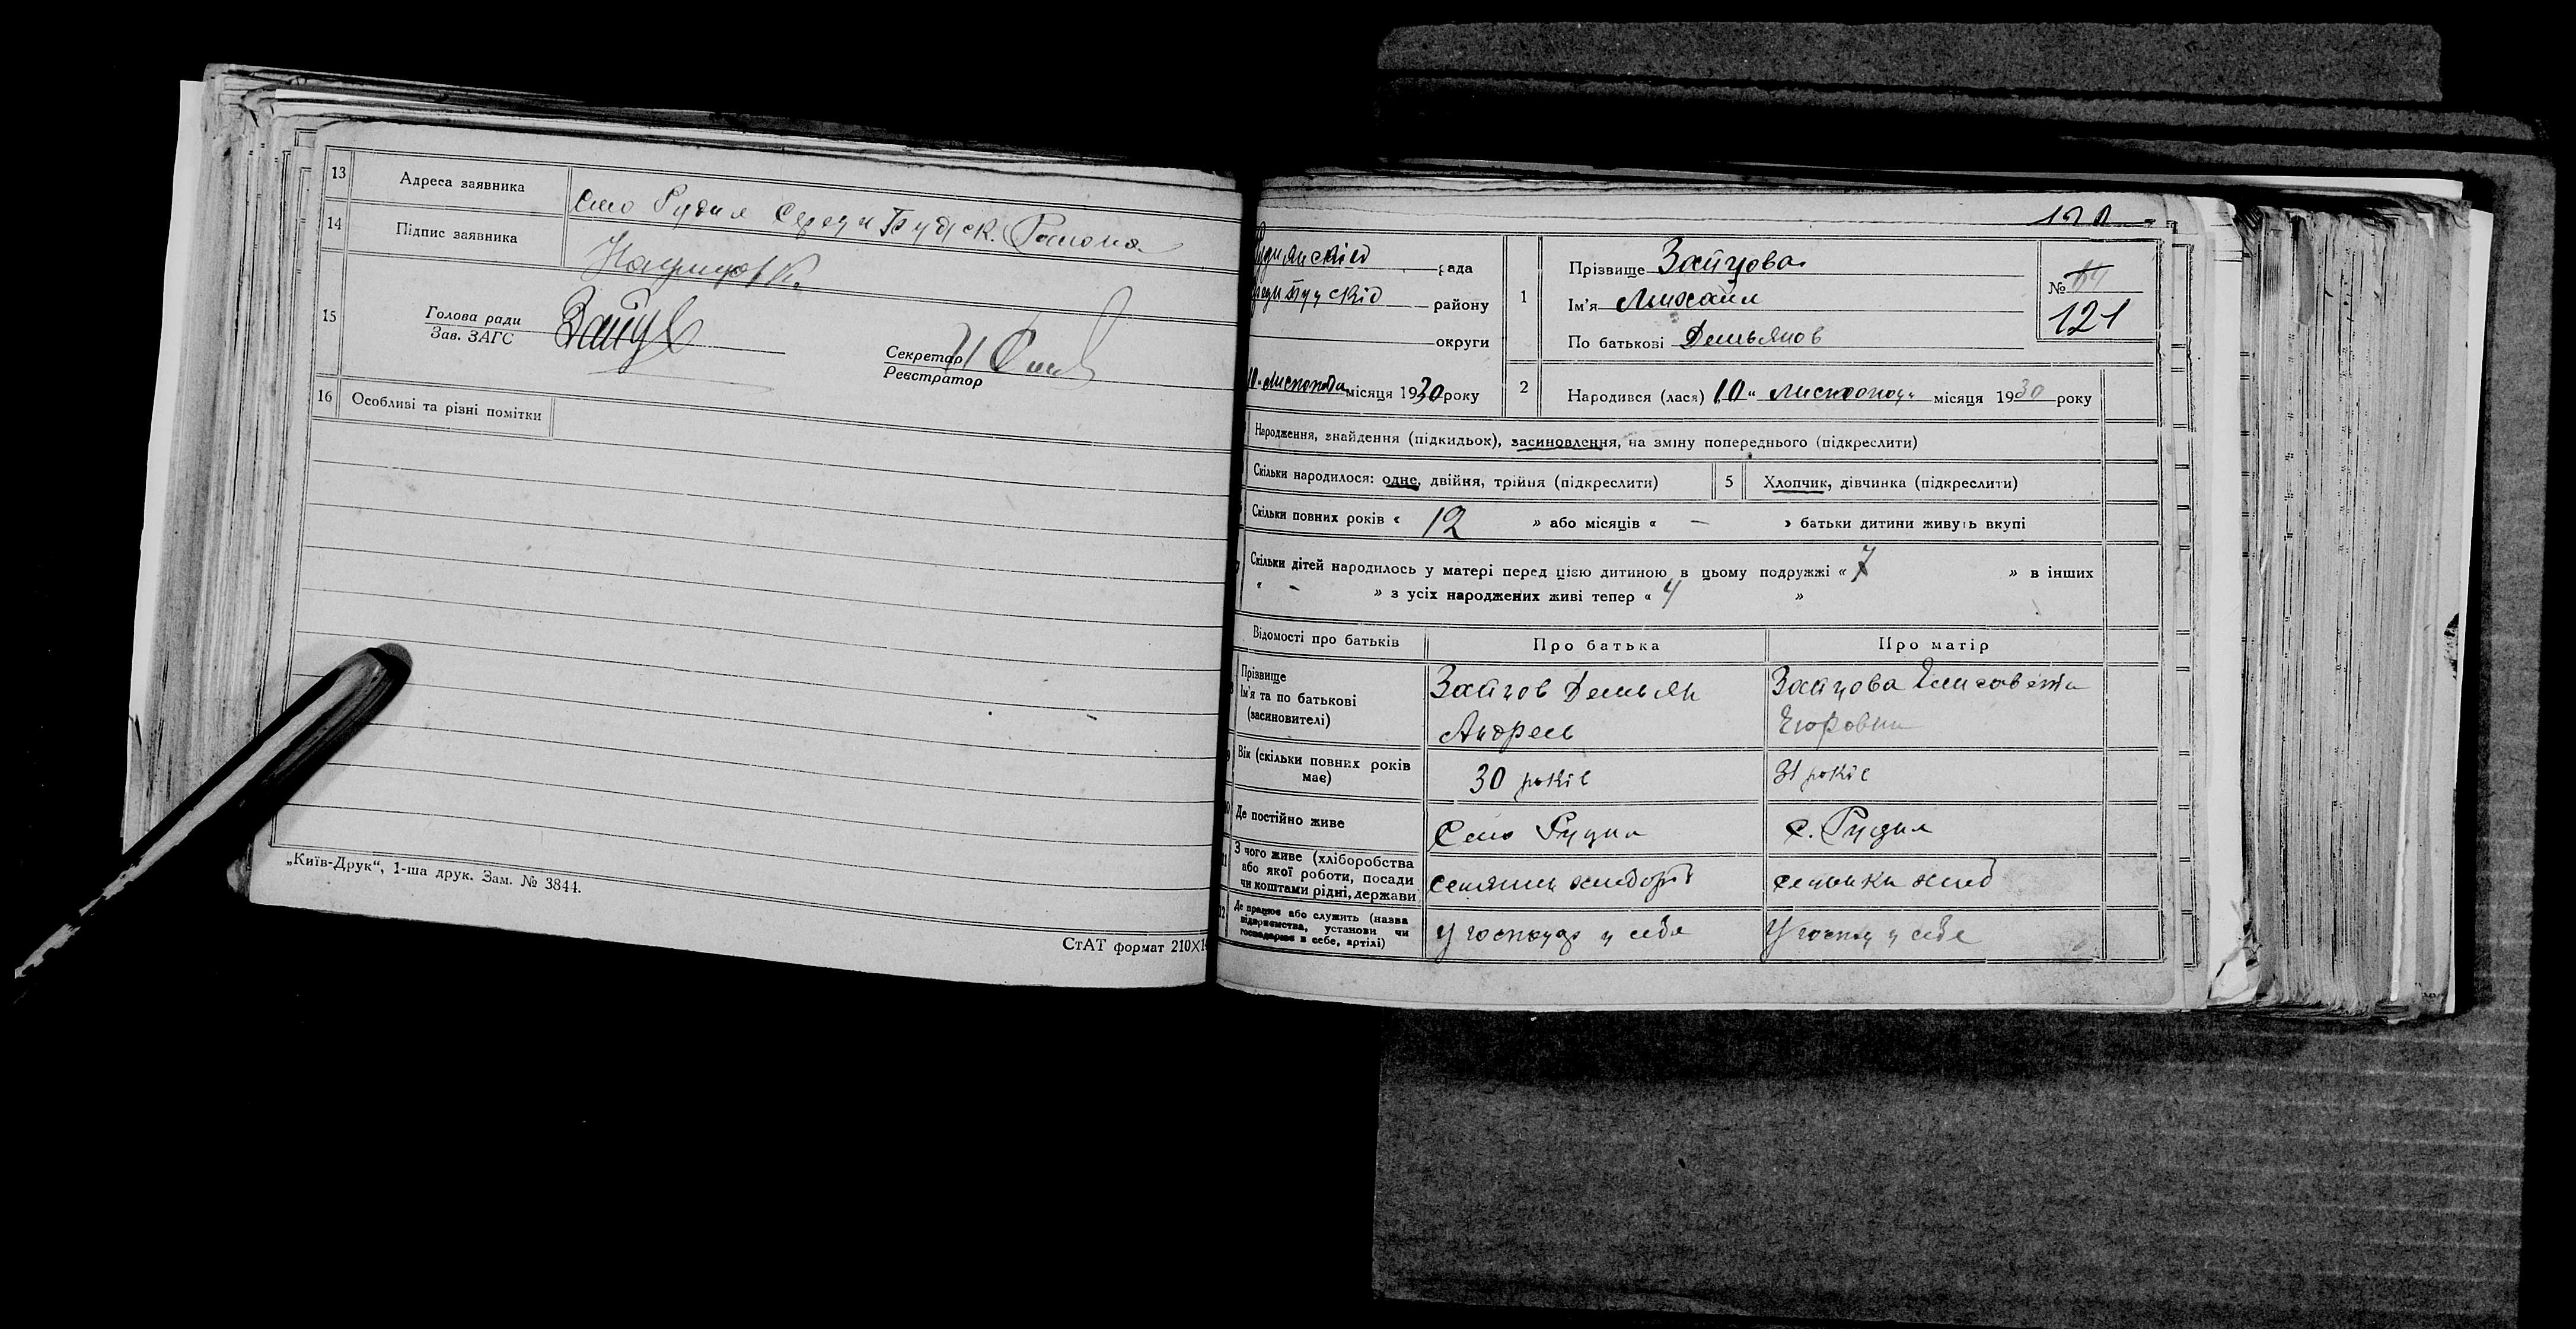 13 Адреса заявника Село Рудня Середи Будск. Района
14 Підпис заявника
15 Голова ради
Зав. ЗАГС
Секретар
Реєстратор
16 Особливі та різні помітки
„Київ-Друк“, 1-ша друк. Зам. № 3844.
СтАТ формат 210X1
рада
району
округи
10 " листопода місяця 1930 року
1 Прізвище Зайцова
Ім'я Михаил
По батькові Демьянов
№ 84
121
2 Народився (лася) 10 " листопод " місяця 1930 року
Народження, знайдення (підкидьок), засиновлення, на зміну попереднього (підкреслити)
Скільки народилося: одне, двійня, трійня (підкреслити) 5 Хлопчик, дівчинка (підкреслити)
Скільки повних років « 12 » або місяців « – » батьки дитини живуть вкупі
Скільки дітей народилось у матері перед цією дитиною в цьому подружжі « 7 » в інших
« – » з усіх народжених живі тепер « 4 »
Відомості про батьків Про батька Про матір
Прізвище
Ім'я та по батькові
(засиновителі)
Зайцов Демьян
Андреев
Зайцова Елисавета
Егоровна
9 Вік (скільки повних років
має)
30 років
31 років
10 Де постійно живе Село Рудня с. Рудня
11 З чого живе (хліборобства
або якої роботи, посади
чи коштами рідні, держави
12 Де працює або служить (назва
підприємства, установи чи
господарює в себе, артілі)
у господ у себя
У господ у себе